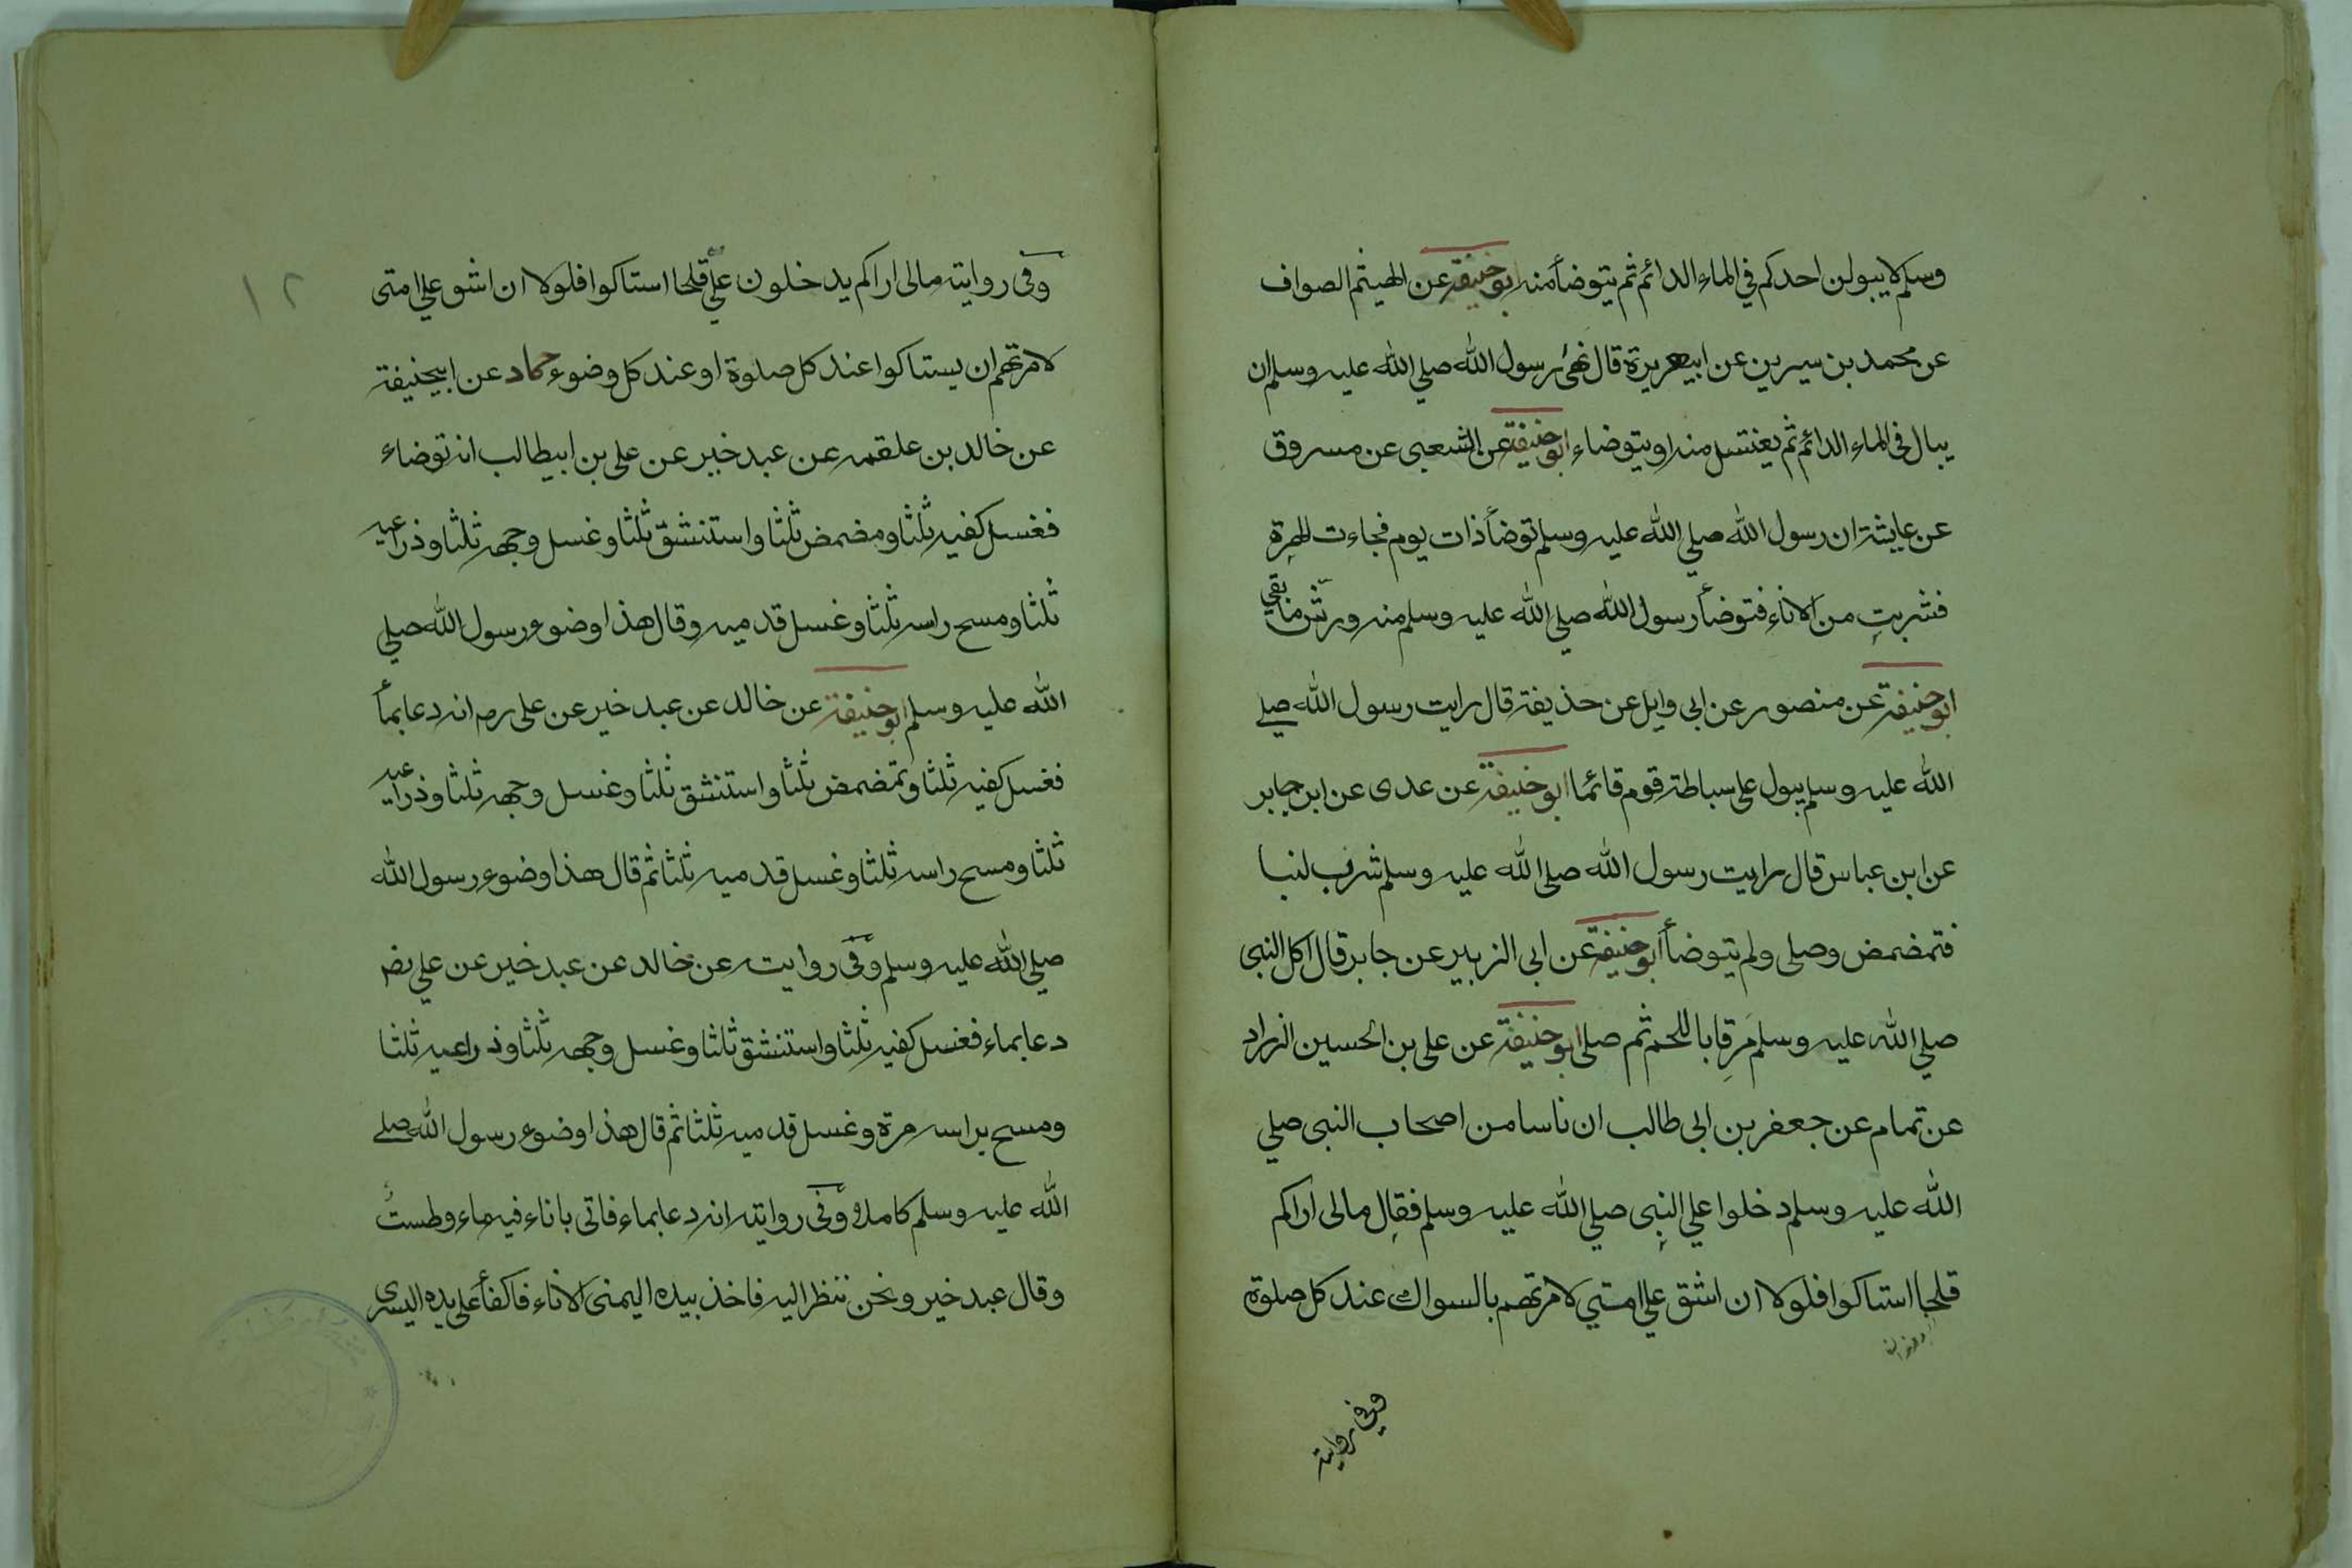 وسلم لا يبولن احدكم في الماء الدائم ثم يتوضأ منه ابو حنيفة عن الهيثم الصواف
عن محمد بن سيرين عن ابيهريرة قال نهى رسول الله صلي الله عليه وسلم ان
يبال في الماء الدائم ثم يغتسل منه او يتوضاء ابو حنيفة عن الشعبى عن مسروق
عن عايشة ان رسول الله صلي الله عليه وسلم توضأ ذات يوم فجاءت الهرة
فشربت من الاناء فتوضأ رسول الله صلي الله عليه وسلم منه ورش ما بقي
ابو حنيفة عن منصور عن ابى وايل عن حذيفة قال رايت رسول الله صلے
الله عليه وسلم يبول على سباطة قوم قائما ابو حنيفة عن عدى عن ابن جابر
عن ابن عباس قال رايت رسول الله صلى الله عليه وسلم شرب لبنا
فتمضمض وصلى ولم يتوضأ ابو حنيفة عن ابى الزبير عن جابر قال اكل النبى
صلي الله عليه وسلم مَرِقا باللحم ثم صلى ابو حنيفة عن على بن الحسين الزراد
عن تمام عن جعفر بن ابى طالب ان ناسا من اصحاب النبى صلي
الله عليه وسلم دخلوا علي النبى صلي الله عليه وسلم فقال مالى اراكم
قلحا استاكوا فلولا ان اشق علي امتي لامرتهم بالسواك عند كل صلوة
وفي رواية
١٢
وفى رواية مالى اراكم يدخلون عليّ قلحا استاكوا فلولا ان اشق علي امتى
لامرتهم ان يستاكوا عند كل صلوة او عند كل وضوء حماد عن ابيحنيفة
عن خالد بن علقمه عن عبد خير عن على بن ابيطالب انه توضاء
فغسل كفيه ثلثا ومضمض ثلثا واستنشق ثلثا وغسل وجهه ثلثا وذراعيه
ثلثا ومسح راسه ثلثا وغسل قدميه وقال هذا وضوء رسول الله صلي
الله عليه وسلم ابو حنيفة عن خالد عن عبد خير عن على رض انه دعا بماء
فغسل كفيه ثلثا وتمضمض ثلثا واستنشق ثلثا وغسل وجهه ثلثا وذراعيه
ثلثا ومسح راسه ثلثا وغسل قدميه ثلثا ثم قال هذا وضوء رسول الله
صلي الله عليه وسلم وفى رواية عن خالد عن عبد خير عن علي رض
دعا بماء فغسل كفيه ثلثا واستنشق ثلثا وغسل وجهه ثلثا وذراعيه ثلثا
ومسح براسه مرة وغسل قدميه ثلثا ثم قال هذا وضوء رسول الله صلے
الله عليه وسلم كاملا وفى رواية انه دعا بماء فاتى باناء فيه ماء وطستُ
وقال عبد خير ونحن ننظر اليه فاخذ بيده اليمنى الاناء فاكفأ على يده اليسرى